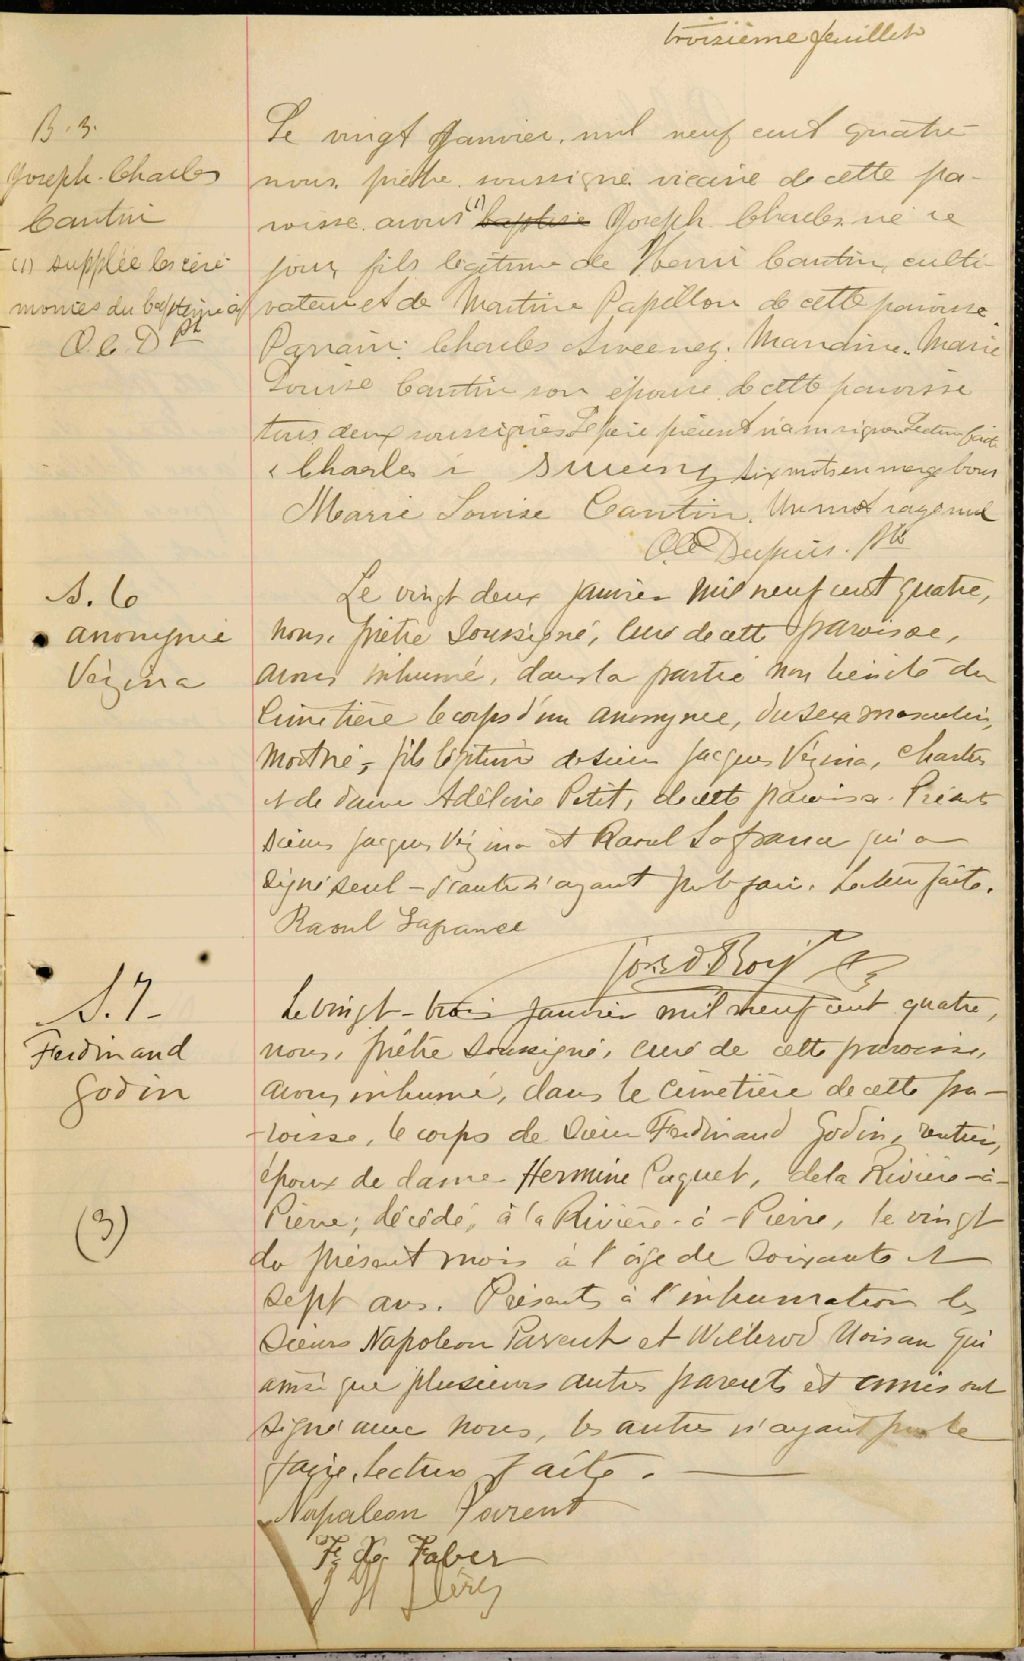 troisième feuillet
B. 3.
Joseph-Charles
Cantin
(1) supplée les céré
monies du baptême à
O. C. D Pt
Le vingt Janvier, mil neuf cent quatre
nous prêtre soussigné vicaire de cette pa-
roisse avons (1) baptisé Joseph Charles né ce
jour, fils légitime de Henri Cantin, culti-
vateur et de Martine Papillon de cette paroisse.
Parrain: Charles Sweeney. Marraine Marie
Louise Cantin son épouse de cette paroisse
tous deux soussignés Le père présent n'a su signer Lecture faite
Charles Sweeny six mots en marge bons
Marie Louise Cantin. Un mot rayé nul
O. C. Dupuis. Ptre
S. 6
anonyme
Vézina
Le vingt deux janvier mil neuf cent quatre,
nous, prêtre soussigné, curé de cette paroisse,
avons inhumé, dans la partie non bénite du
Cimetière le corps d'un anonyme, du sexe masculin,
mort né, fils légitime de sieur Jacques Vézina,
et de dame Adéline Petit, de cette paroisse. Présents
sieurs Jacques Vézina et Raoul Lafrance qui a
signé seul - l'autre n'ayant pu le faire. Lecture faite.
Raoul Lafrance
Jos. D. Roy
S. 7-
Ferdinand
Godin
(3)
Le vingt-trois janvier mil neuf cent quatre,
nous, prêtre soussigné, curé de cette paroisse,
avons inhumé, dans le cimetière de cette pa-
-roisse, le corps de sieur Ferdinand Godin, rentier,
époux de dame Hermine Paquet, de la Rivière-à-
Pierre, décédé, à la Rivière-à-Pierre, le vingt
du présent mois à l'âge de soixante et
sept ans. Présents à l'inhumation les
sieurs Napoleon Parent et Voisan qui
ainsi que plusieurs autres parents et amis ont
signé avec nous, les autres n'ayant pu le
faire, lecture faite.
Napoleon Parent
F. X. Faber